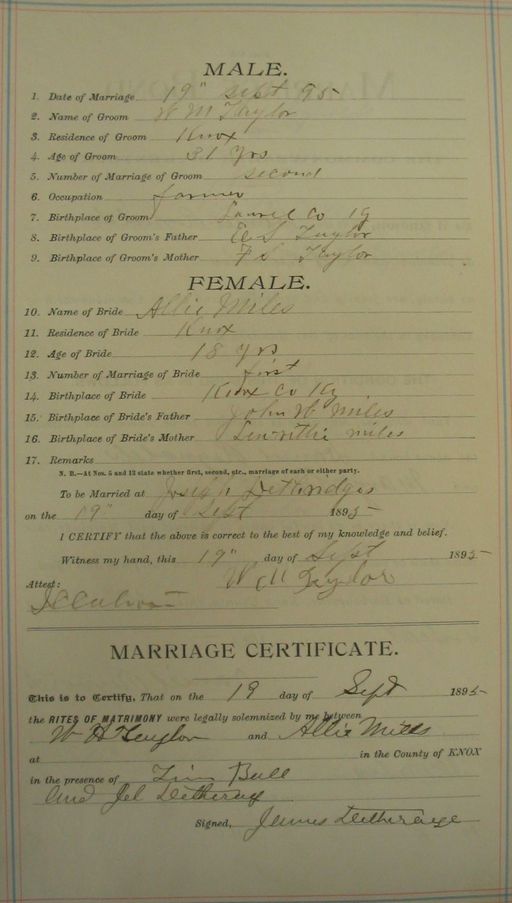 MALE.
1. Date of Marriage 19" Sept 95
2. Name of Groom W M Taylor
3. Residence of Groom Knox
4. Age of Groom 31 yrs
5. Number of Marriage of Groom second
6. Occupation farmer
7. Birthplace of Groom Laurel Co Ky
8. Birthplace of Groom's Father E S Taylor
9. Birthplace of Groom's Mother F S Taylor
FEMALE.
10. Name of Bride Allie Miles
11. Residence of Bride Knox
12. Age of Bride 18 yrs
13. Number of Marriage of Bride first
14. Birthplace of Bride Knox Co Ky
15. Birthplace of Bride's Father John W Miles
16. Birthplace of Bride's Mother miles
17. Remarks
N. B.—At Nos. 5 and 13 state whether first, second, etc., marriage of each or either party.
To be Married at Joseph Detheridges
on the 19" day of Sept 1895
I CERTIFY that the above is correct to the best of my knowledge and belief.
Witness my hand, this 19" day of Sept 1895
W M Taylor
Attest:
MARRIAGE CERTIFICATE.
This is to Certify, That on the 19 day of Sept 1895
the RITES OF MATRIMONY were legally solemnized by me between
W H Taylor and Allie Mills
at in the County of KNOX
in the presence of Jim Ball
and Jel
Signed, James Detherage